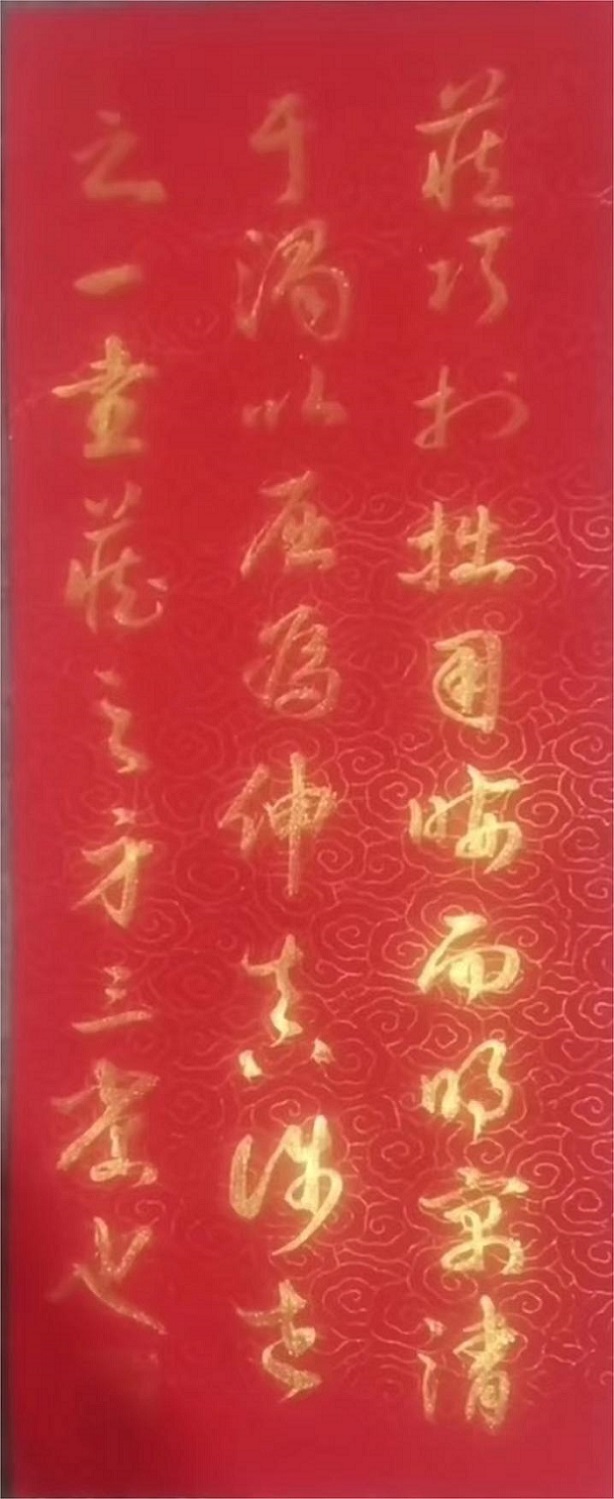 藏巧於拙用晦而明寓清
于濁以屈為伸真涉世
之一壺藏之身三窟也